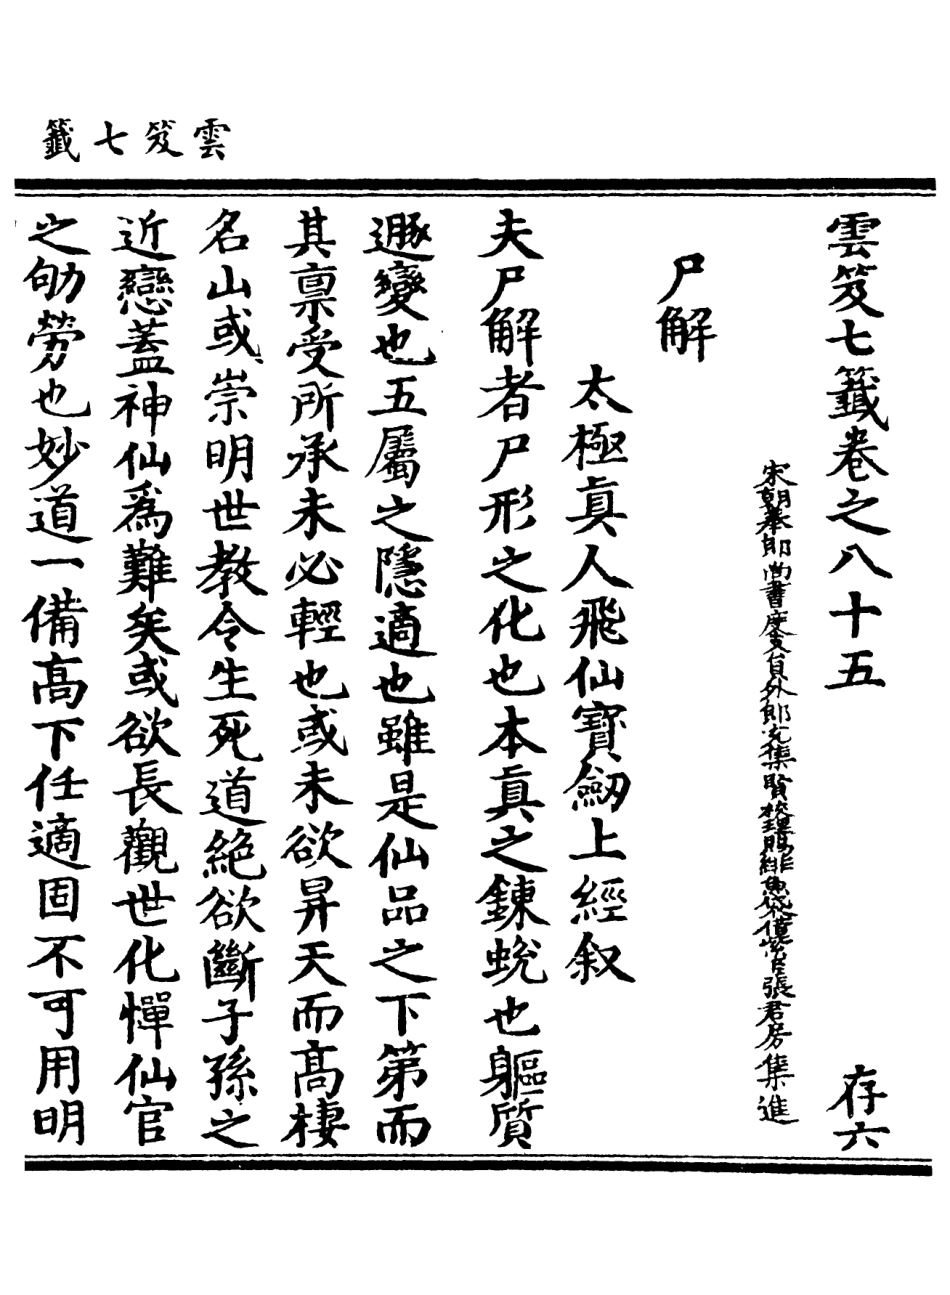 雲笈七籤
雲笈七籤卷之八十五　存六
宋朝奉郎尚書度支員外郎充集賢校理賜緋魚袋借紫臣張君房集進
尸解
太極眞人飛仙寶劒上經叙
夫尸解者尸形之化也本眞之鍊蛻也軀質
遯變也五屬之隱適也雖是仙品之下第而
其禀受所承未必輕也或未欲昇天而高棲
名山或崇明世教令生死道絶欲斷子孫之
近戀蓋神仙爲難矣或欲長觀世化憚仙官
之劬勞也妙道一備高下任適固不可用明